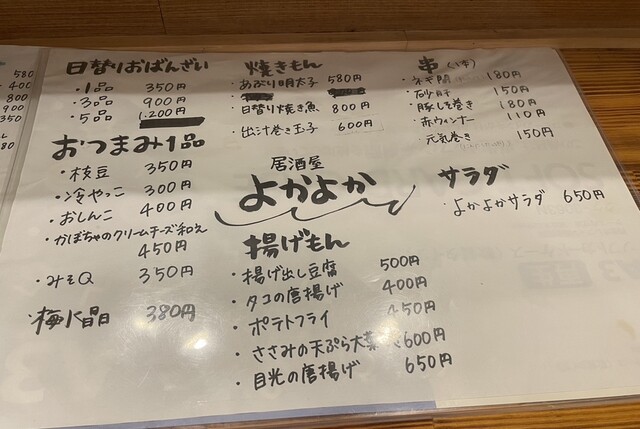 580
400
800
900
350
580
日替りおばんざい
・1品 350円
・3品 900円
・5品 1,200円
おつまみ1品
・枝豆 350円
・冷やっこ 300円
・おしんこ 400円
・かぼちゃのクリームチーズ和え
450円
・みそQ 350円
・梅水晶 380円
焼きもん
・あぶり明太子 580円
・日替り焼き魚 800円
・出汁巻き玉子 600円
居酒屋
よかよか
揚げもん
・揚げ出し豆腐 500円
・タコの唐揚げ 400円
・ポテトフライ 450円
・ささみの天ぷら大葉 600円
・目光の唐揚げ 650円
串(1本)
・ネギ間 180円
・砂肝 150円
・豚しそ巻き 180円
・赤ウィンナー 110円
・元気巻き 150円
サラダ
・よかよかサラダ 650円